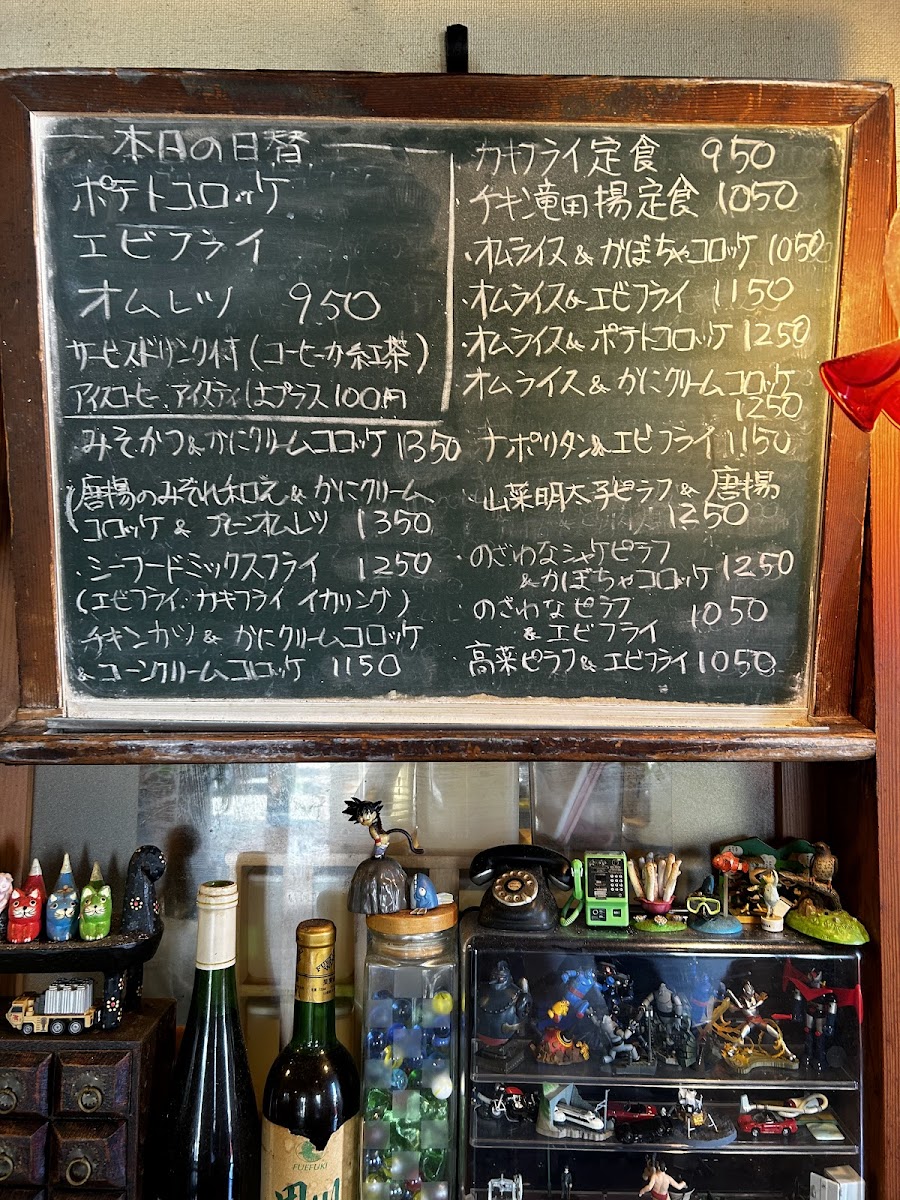 本日の日替
ポテトコロッケ
エビフライ
オムレツ 950
サービスドリンク付(コーヒーか紅茶)
アイスコーヒ、アイスティはプラス100円
みそかつ&かにクリームコロッケ 1350
唐揚のみぞれ和え&かにクリーム
コロッケ & プレーンオムレツ 1350
・シーフードミックスフライ 1250
(エビフライ、カキフライ イカリング)
チキンカツ & かにクリームコロッケ
& コーンクリームコロッケ 1150
カキフライ定食 950
・チキン竜田揚定食 1050
・オムライス & かぼちゃコロッケ 1050
・オムライス&エビフライ 1150
・オムライス& ポテトコロッケ 1250
オムライス & かにクリームコロッケ
1250
ナポリタン&エビフライ 1150
山菜明太子ピラフ & 唐揚
1250
・のざわなシャケピラフ
&かぼちゃコロッケ 1250
・のざわなピラフ
& エビフライ 1050
高菜ピラフ& エビフライ 1050
FUEFUKI